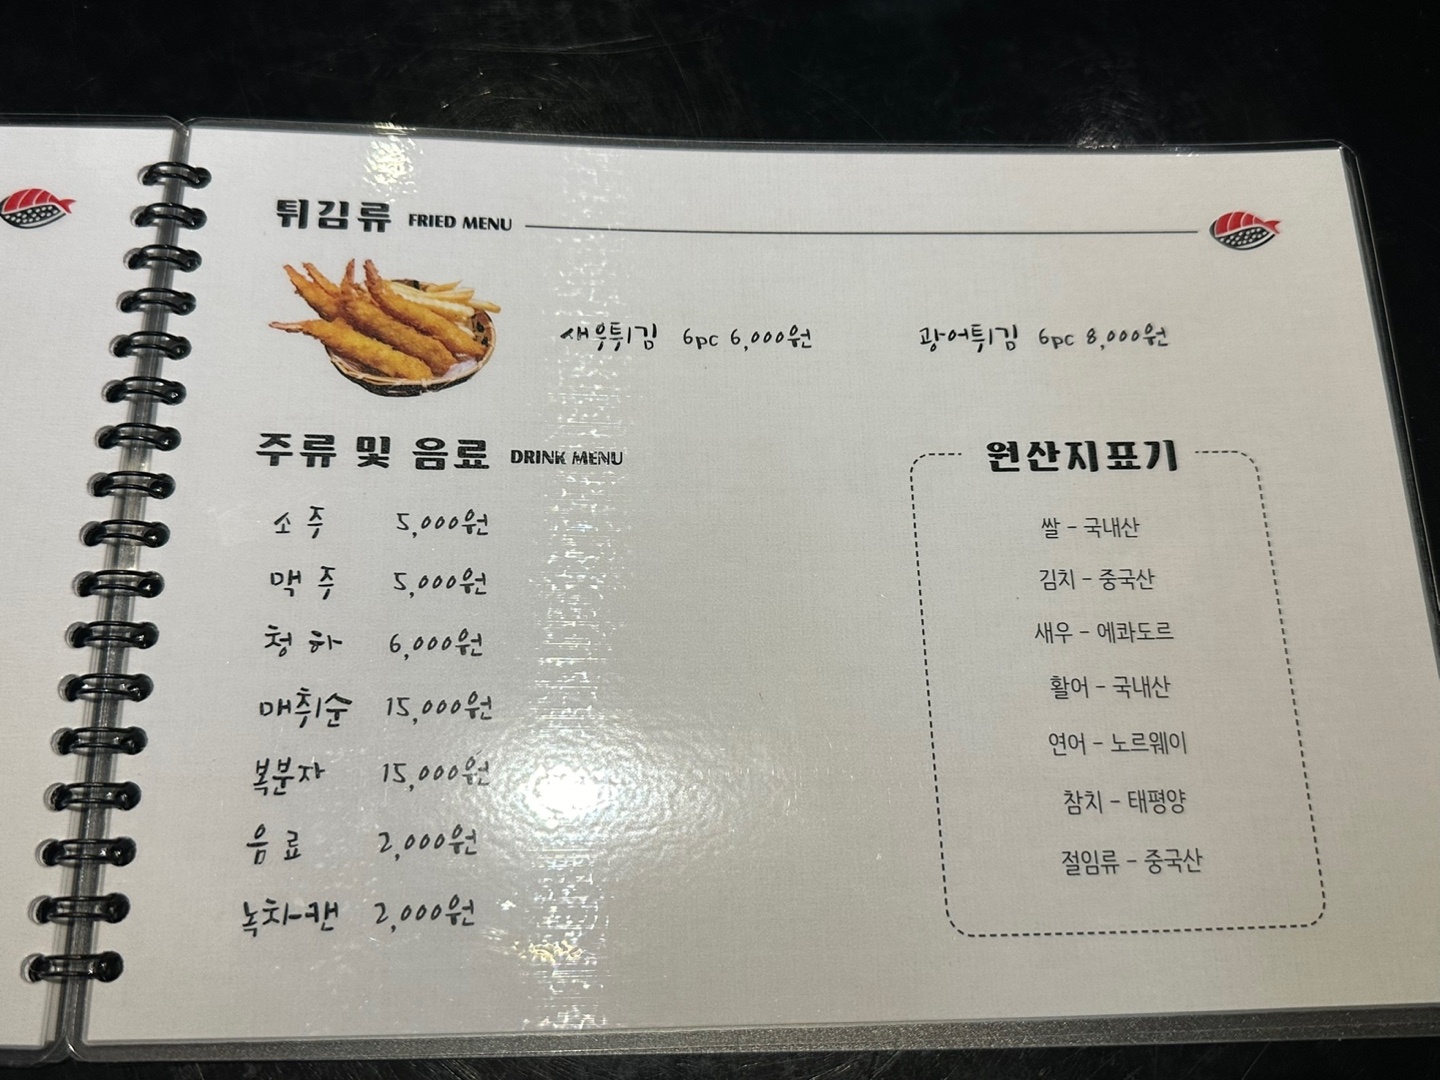 튀김류 FRIED MENU
새우튀김 6pc 6,000원
광어튀김 6pc 8,000원
주류 및 음료 DRINK MENU
소주 5,000원
맥주 5,000원
청하 6,000원
매취순 15,000원
복분자 15,000원
음료 2,000원
녹차캔 2,000원
원산지표기
쌀 - 국내산
김치 - 중국산
새우 - 에콰도르
활어 - 국내산
연어 - 노르웨이
참치 - 태평양
절임류 - 중국산